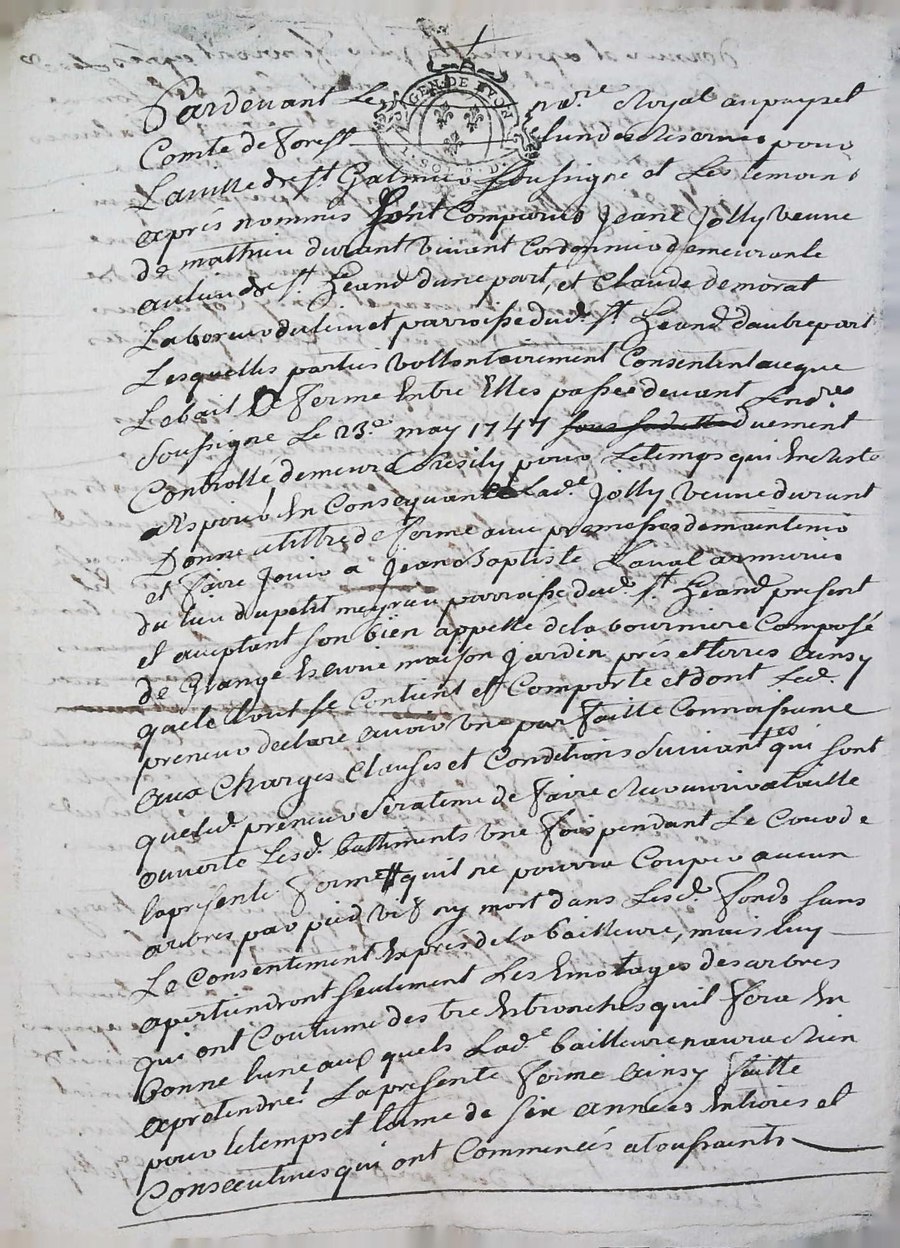 GEN·DE LYON
Pardevant Le no.re Royal au pays et
Comte de Forest lun des reserves pour
La ville de st. Galmier soussigné et Les temoins
apres nommés sont Comparus Jeane Jolly veuve
de mathieu durant vivant Cordonnier demeurante
au lieu de st. heand dune part, et Claude demorat
Laboreur du lieu et parroisse dud. st. heand dautre part
Lesquelles parties vollontairement Consentent a ce que
Le bail a ferme Entre Elles passé devant Le no.re
soussigné Le 23.e may 1747 duement
Controllé demeure Resily pour Le temps qui En reste
En Consequance Lad.e Jolly veuve durant
Donne a tiltre de ferme avec promesses de maintenir
et faire Jouir a Jean Baptiste Laval armurier
du lieu du petit meyrieu parroisse dud. st. heand present
et acceptant son bien appellé de la bourniere Composé
de Grange Ecurie maison Jardin prés et terres Ainsy
que le tout se Contient et Comporte et dont Led.
preneur declare avoir une parfaitte Connoissance
aux Charges Clauses et Conditions suivantes qui sont
que Led. preneur sera tenu de faire Recouvrir a taille
ouverte Lesd. battiments une fois pendant Le Cour de
la presente ferme quil ne pourra Couper aucun
arbres par pied vif ny mort dans Lesd. fonds sans
Le Consentement Exprés de la bailleure, mais luy
apertiendront seulement Les Emotages des arbres
qui ont Coutume destre Ebranches quil fera En
bonne lune aux quels Lad.e bailleure naura Rien
a pretendre! La presente ferme Ainsy faitte
pour le temps et terme de six années Entieres et
Consecutives qui ont Commencés a toussaints